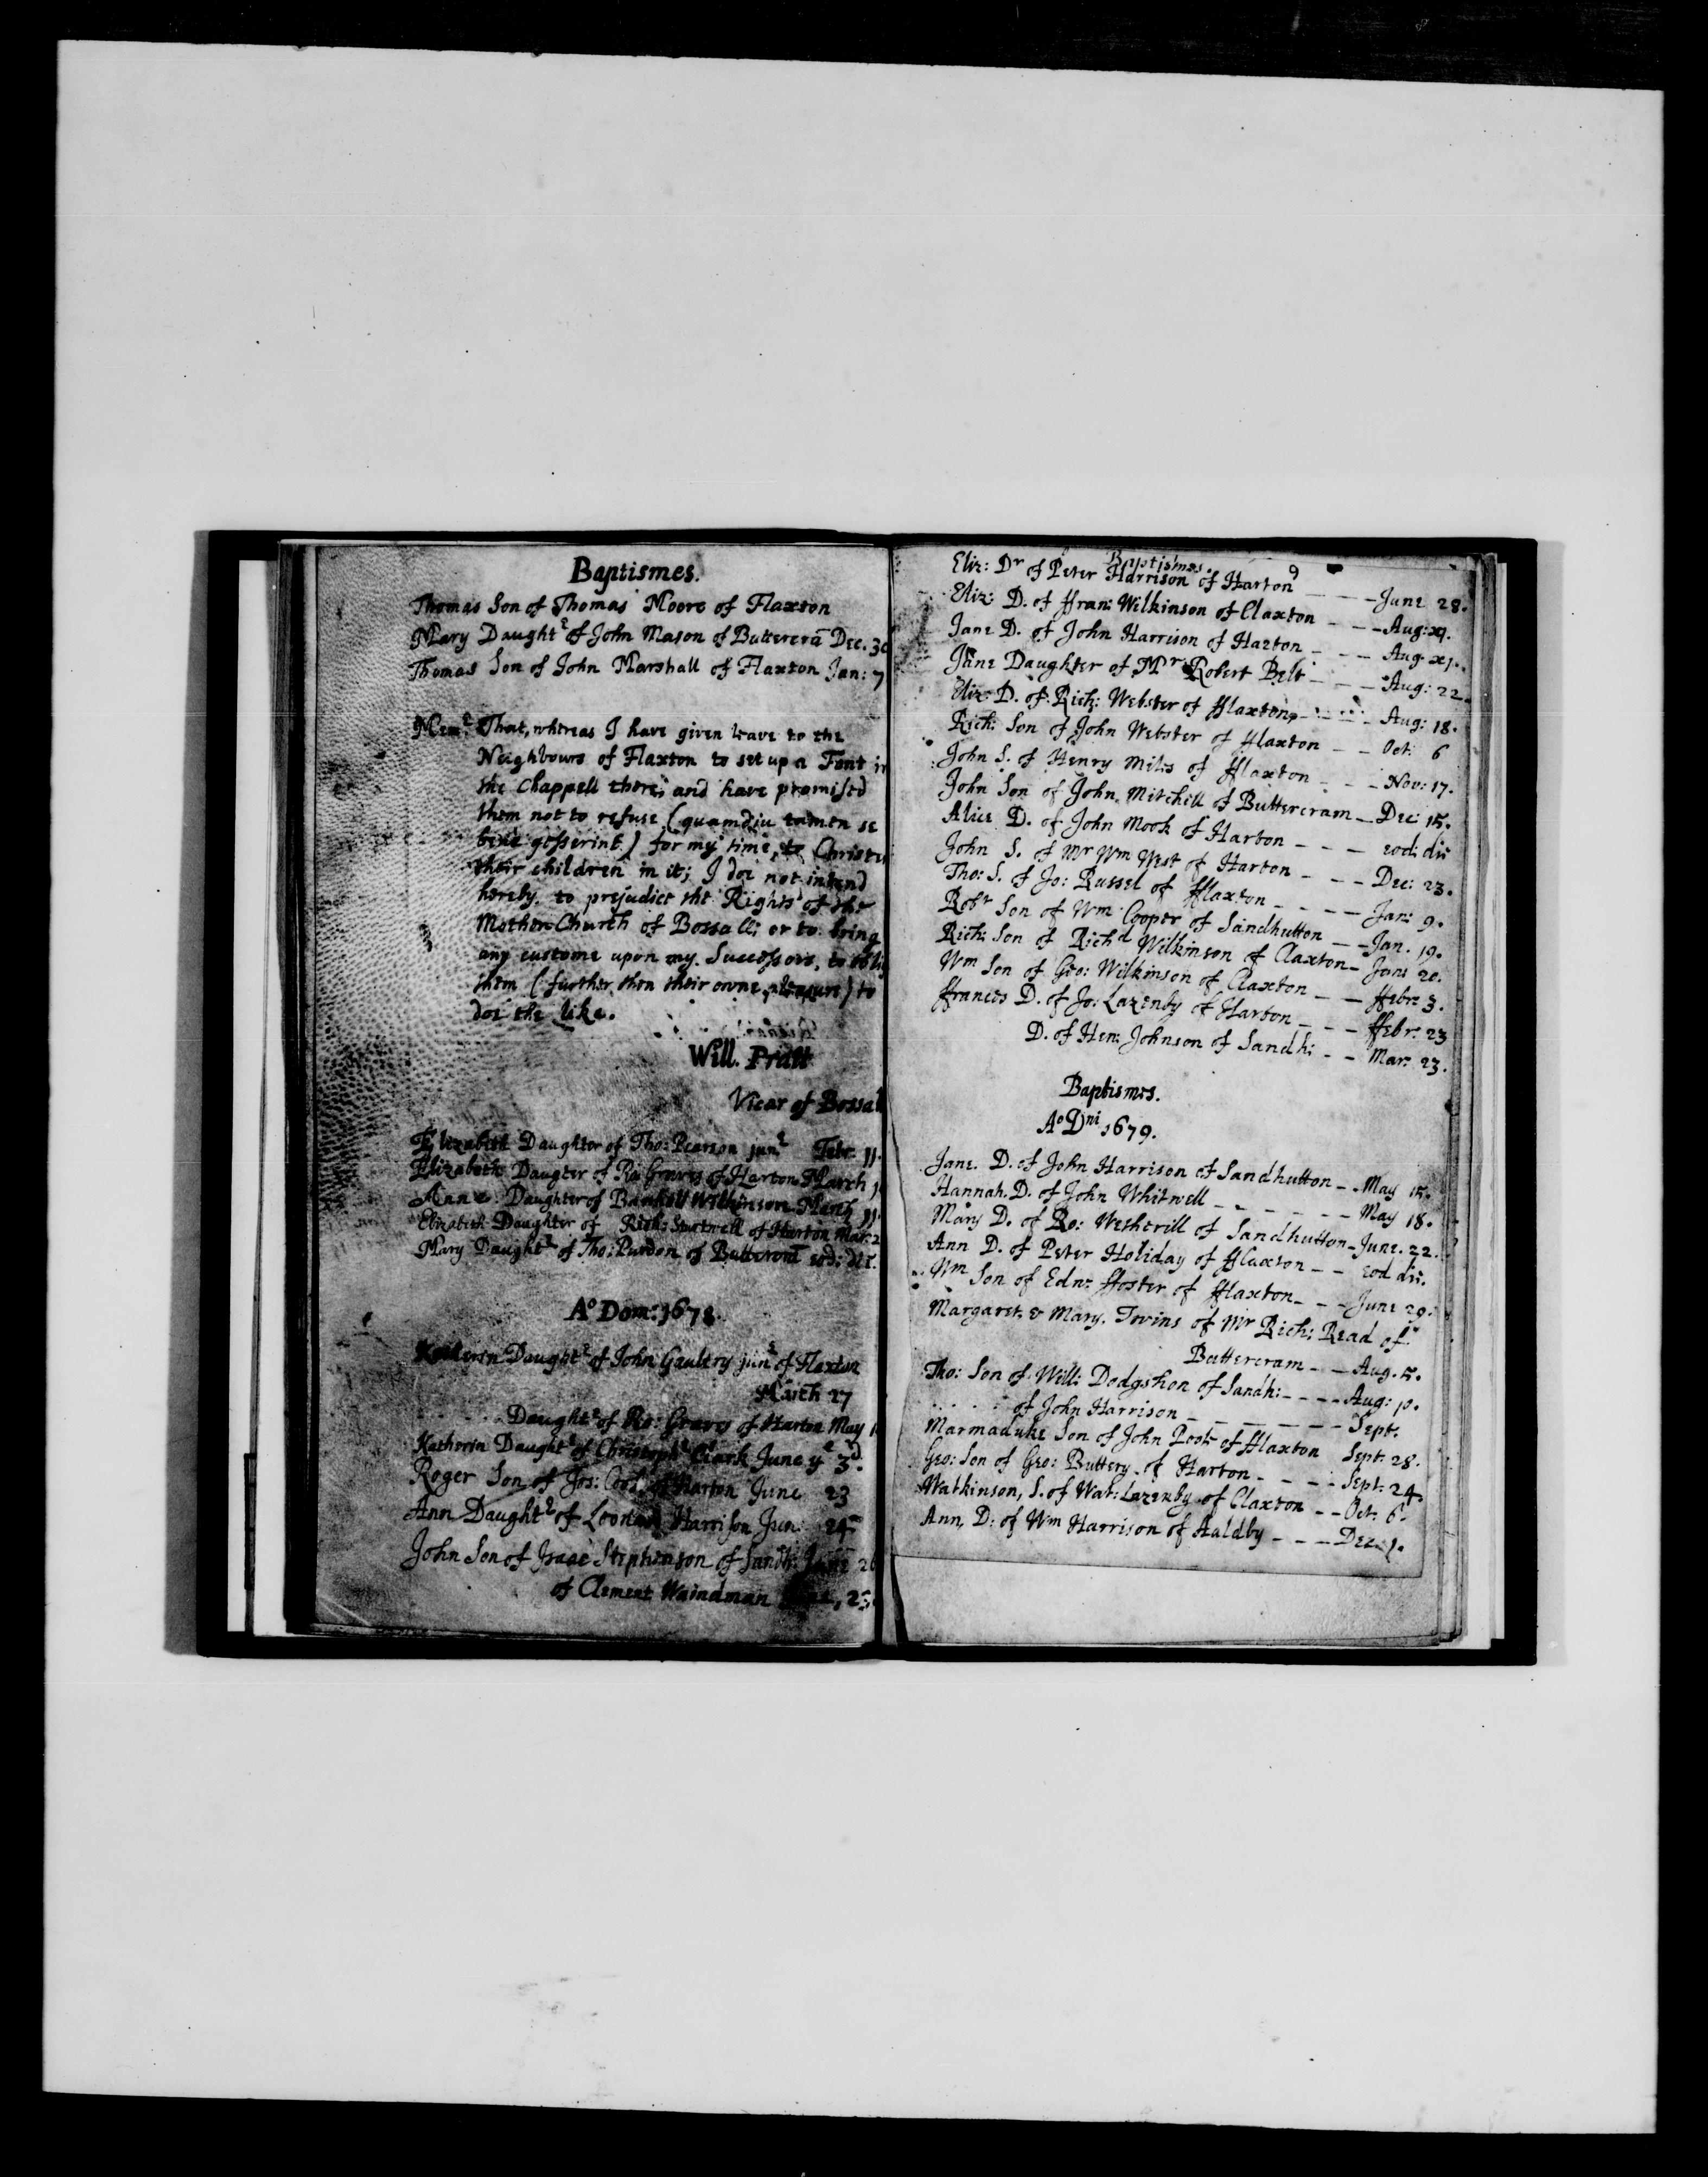 Baptismes.
Thomas Son of Thomas Moore of Flaxton
Mary Daughtr of John Mason of Buttercrā Dec. 30
Thomas Son of John Marshall of Flaxton Jan: 7
Memr That, whereas I have given leave to the
Neighbours of Flaxton to set up a Font in
the Chappell there; and have promised
them not to refuse (quamdiu tamen se
bene gesserint) for my time, to Christen
their children in it; I doe not intend
hereby to prejudice the Rights of the
Mother-Church of Bossall; or to bring
any custome upon my Successors, to
them (further then their owne pleasure) to
doe the like.
Will. Pratt
Vicar of Bossal
Elizabeth Daughter of Tho: Pearson junr Febr. 11.
Elizabeth Daugter of Ro: Graves of Harton March
Anne Daughter of Wilkinson March 11.
Elizabeth Daughter of Rich: of Harton Mar: 2
Mary Daughtr of Tho: Purdon of Buttercrā eod: die.
Ao Dom: 1678.
Katherin Daughtr of John Gaultry junr of Flaxton
March 27
Daughtr of Ro: Graves of Harton May
Katherin Daughtr of Christophr Clark June ye 3d.
Roger Son of Jos: Cook of Harton June 23
Ann Daughtr of Leonard Harrison Jun: 24
John Son of Isaac Stephenson of Sandh: June 26
of Clement Waindman 23
Baptismes. 9
Eliz: Dr of Peter Harrison of Harton - - - June 28.
Eliz: D. of ffran: Wilkinson of Claxton - - - Aug: xj.
Jane D. of John Harrison of Harton - - - Aug. xj.
Jane Daughter of Mr Robert Belt - - - Aug: 22.
Eliz: D. of Rich: Webster of fflaxton - - - Aug: 18.
Rich: Son of John Webster of fflaxton - - Oct: 6
John S. of Henry Miles of fflaxton - - - Nov: 17.
John Son of John Mitchell of Buttercram - Dec: 15.
Alice D. of John Mook of Harton - - - eod: die
John S. of Mr Wm West of Harton - - - Dec: 23.
Tho: S. of Jo: Russel of fflaxton - - - - Jan: 9.
Robt Son of Wm Cooper of Sandhutton - - Jan. 19.
Rich: Son of Richd Wilkinson of Claxton - Jan: 20.
Wm Son of Geo: Wilkinson of Claxton - - ffebr: 3.
ffrances D. of Jo: Lazenby of Harton - - - ffebr: 23
D. of Hen: Johnson of Sandh: - - Mar: 23.
Baptismes.
Ao Dni 1679.
Jane D. of John Harrison of Sandhutton - May 15.
Hannah D. of John Whitwell - - - - - - May 18.
Mary D. of Ro: Wetherill of Sandhutton - June. 22.
Ann D. of Peter Holiday of fflaxton - - eod die.
Wm Son of Edm: ffoster of fflaxton - - - June 29.
Margaret & Mary, Twins of Mr Rich: Read of
Buttercram - - Aug. 5.
Tho: Son of Will: Dodgshon of Sandh: - - - - Aug: 10.
of John Harrison - - - - - - - Sept.
Marmaduke Son of John Poole of fflaxton Sept: 28.
Geo: Son of Geo: Buttery of Harton - - - - Sept: 24.
Watkinson, S. of Wat: Lazenby of Claxton - - Oct. 6.
Ann, D: of Wm Harrison of Aaldby - - - Dec: